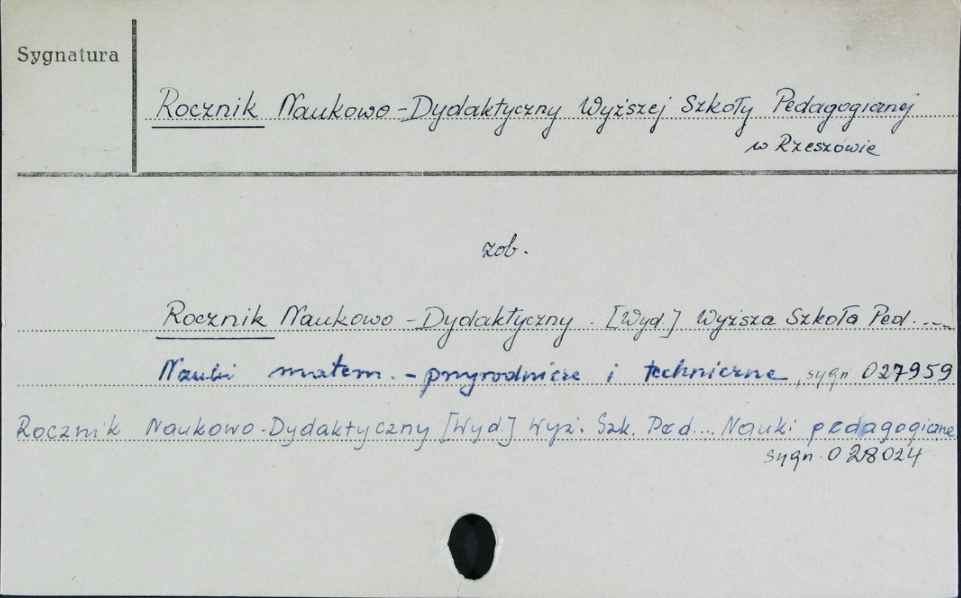 Sygnatura
Rocznik Naukowo-Dydaktyczny Wyższej Szkoły Pedagogicznej
w Rzeszowie
zob.
Rocznik Naukowo-Dydaktyczny. [Wyd.] Wyższa Szkoła Ped. ...
Nauki matem.-przyrodnicze i techniczne, sygn 027959
Rocznik Naukowo-Dydaktyczny [Wyd] Wyż. Szk. Ped... Nauki pedagogiczne
sygn. 028024